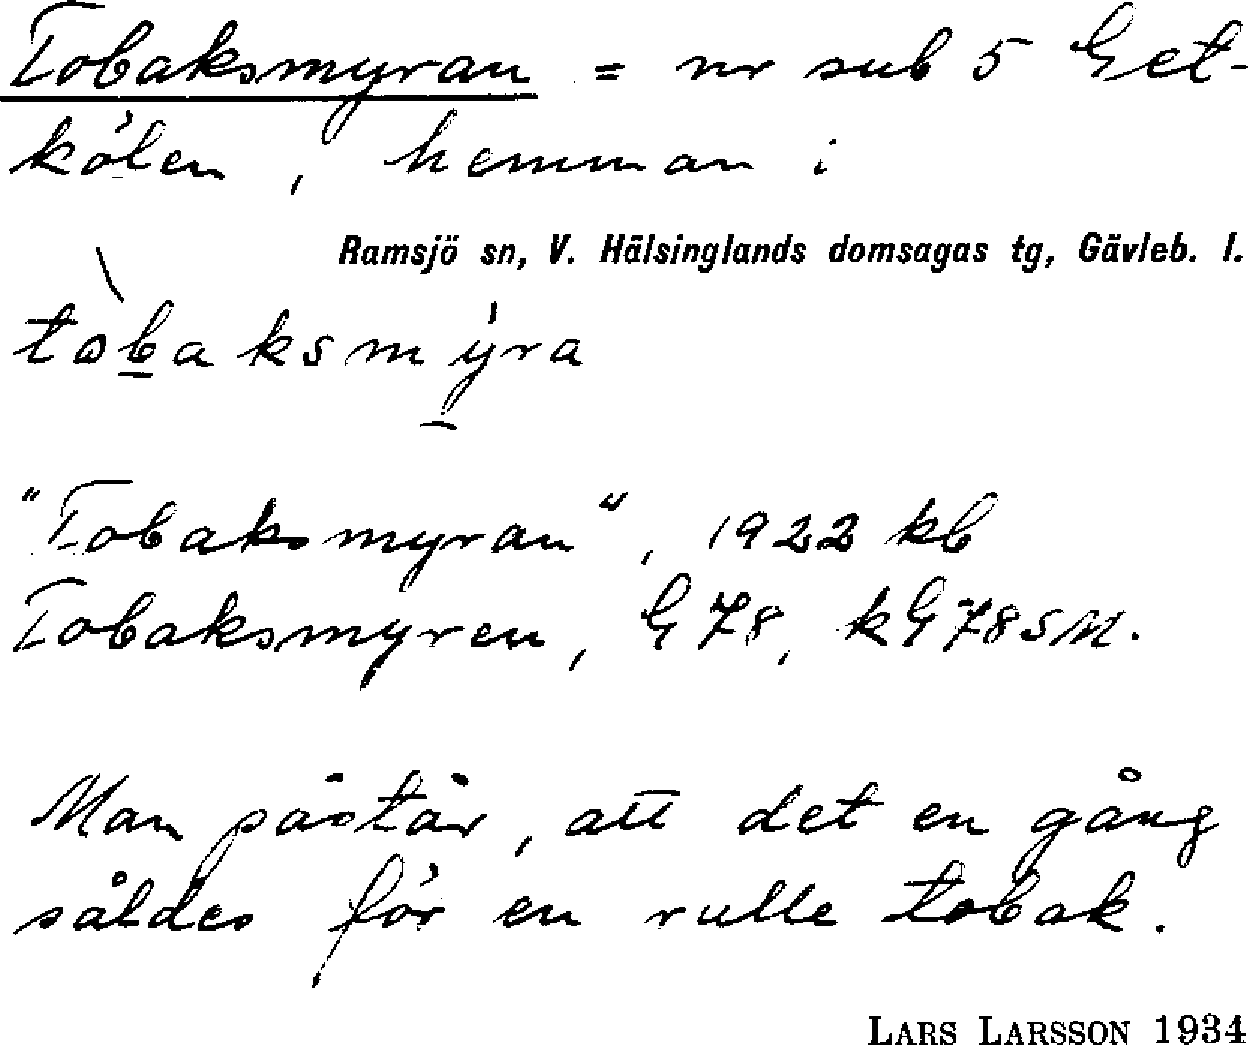 Tobaksmyran = nr sub 5 Get-
kölen, hemman i
Ramsjö sn, V. Hälsinglands domsagas tg, Gävleb. l.
tòbaksmýra
"Tobaksmyran", 1922 kb
Tobaksmyren, G 78, kG78SM.
Man påstår, att det en gång
såldes för en rulle tobak.
LARS LARSSON 1934